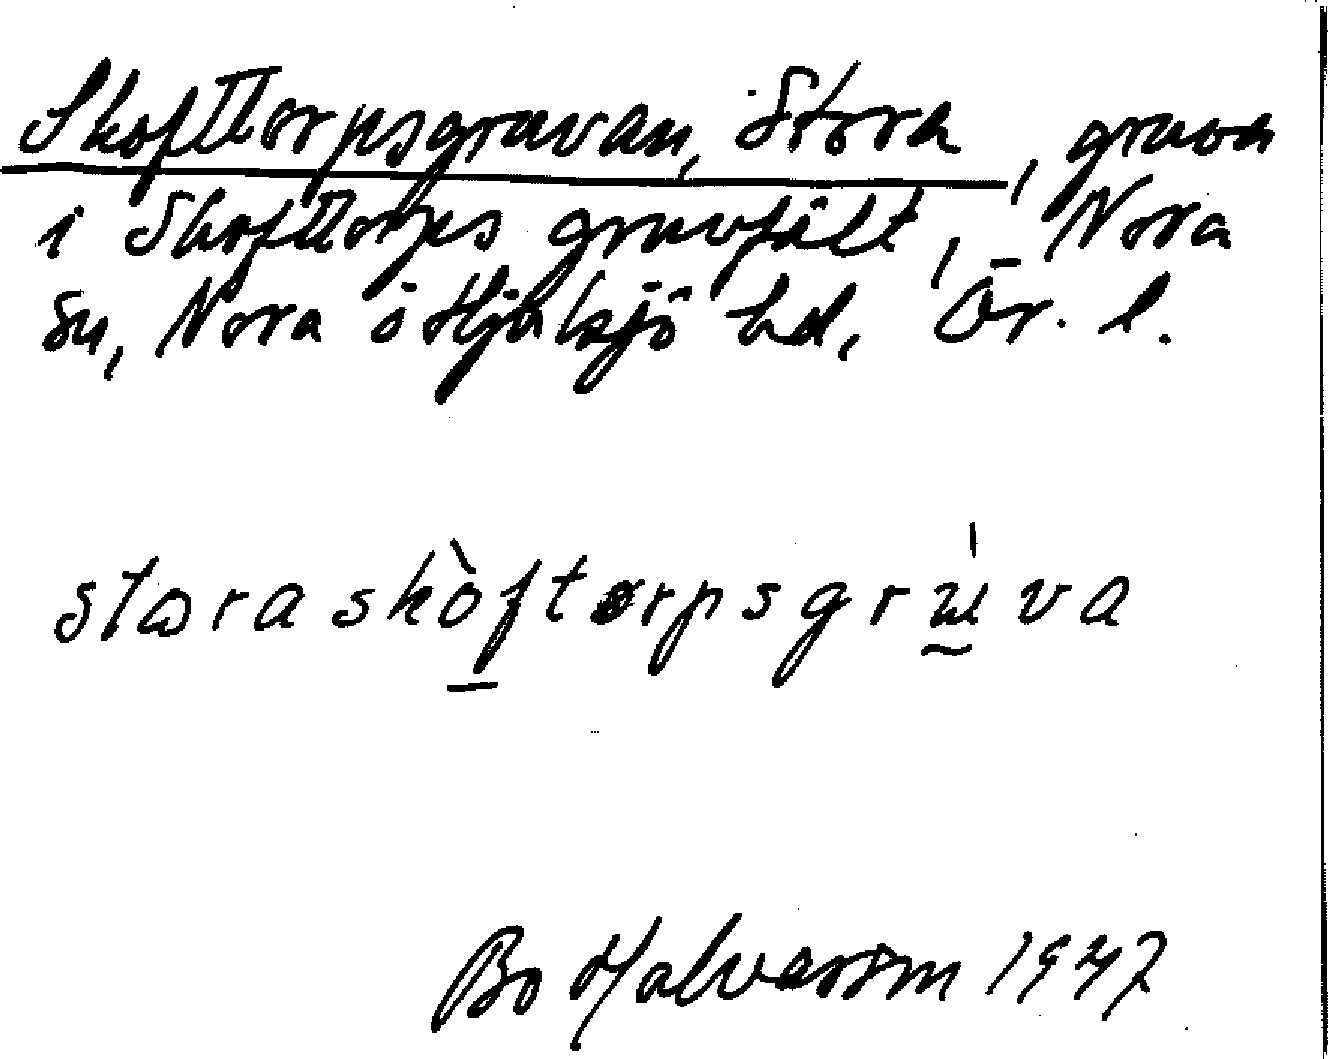 Skofttorpsgruvan, Stora, gruva
i Skofttorps gruvfält, Nora
sn, Nora o Hjulsjö hd, Ör. l.
storaskòftorpsgrúva
Bo Halvarson 1947